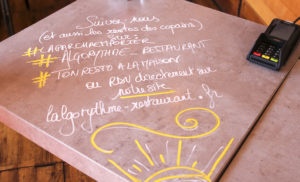 Suivez nous
(et aussi les restos des copains)
sur:
#CAPARCHAEMPORTER
#ALGORYTHME-RESTAURANT
#TONRESTO A LA MAISON
ou RDV directement sur
notre site
lalgorythme-restaurant.fr